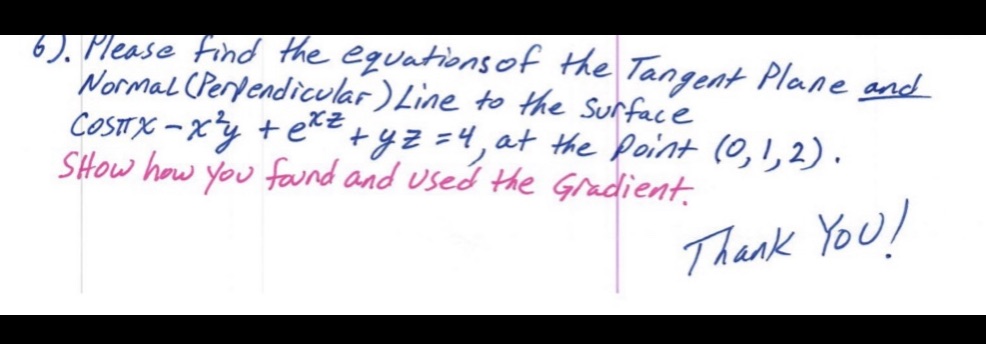 6). Please find the equations of the Tangent Plane and
Normal (Perpendicular) Line to the surface
COSπX - x²y + e^xz + yz = 4, at the Point (0, 1, 2).
SHow how you found and used the Gradient.
Thank YOU!